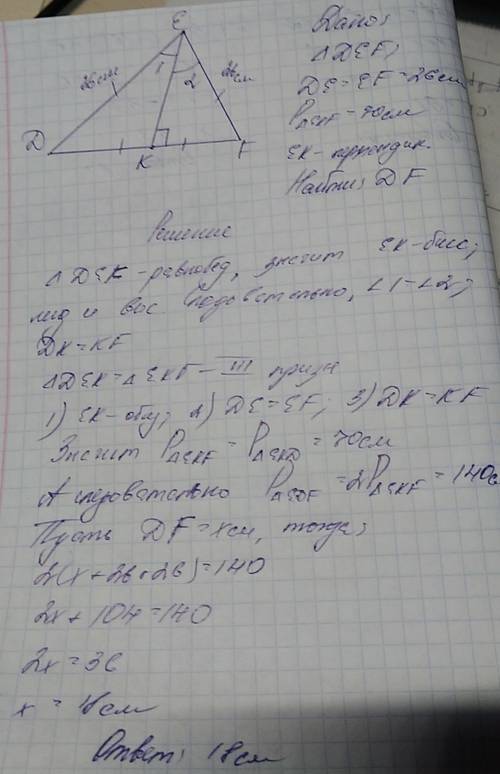 E
26см
1
2
26см
D
K
F
Дано:
△DEF;
DE = EF = 26см
P△EKF = 70см
EK - перпендик.
Найти: DF
Решение
△DEK - равнобед, значит EK - бисс;
мед и выс ∠1 = ∠2;
DK = KF
△DEK = △EKF - III призн
1) EK - общ; 2) DE = EF; 3) DK = KF
Значит P△EKF = P△EKD = 70см
А следовательно P△EDF = 2P△EKF = 140см
Пусть DF = xсм, тогда:
2(x + 26 + 26) = 140
2x + 104 = 140
2x = 36
x = 18см
Ответ: 18см